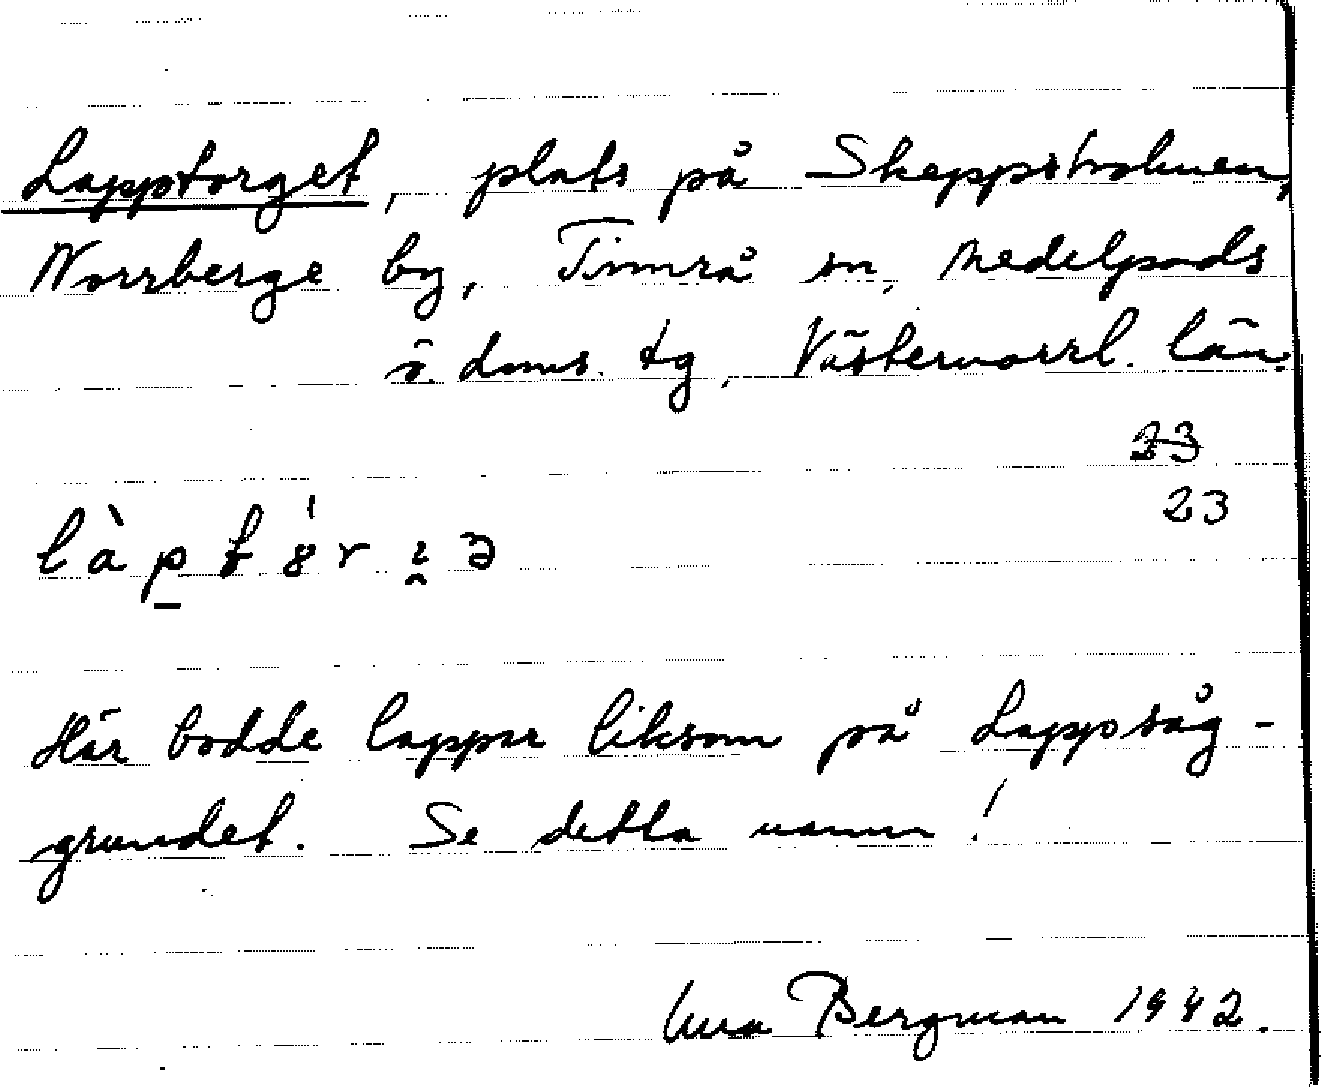 Lapptorget, plats på Skeppsholmen,
Norrberge by, Timrå sn, Medelpads
ö. doms. tg, Västernorrl. län.
23
23
Här bodde lappar liksom på Lappsåg-
grundet. Se detta namn!
Bergman 1942.